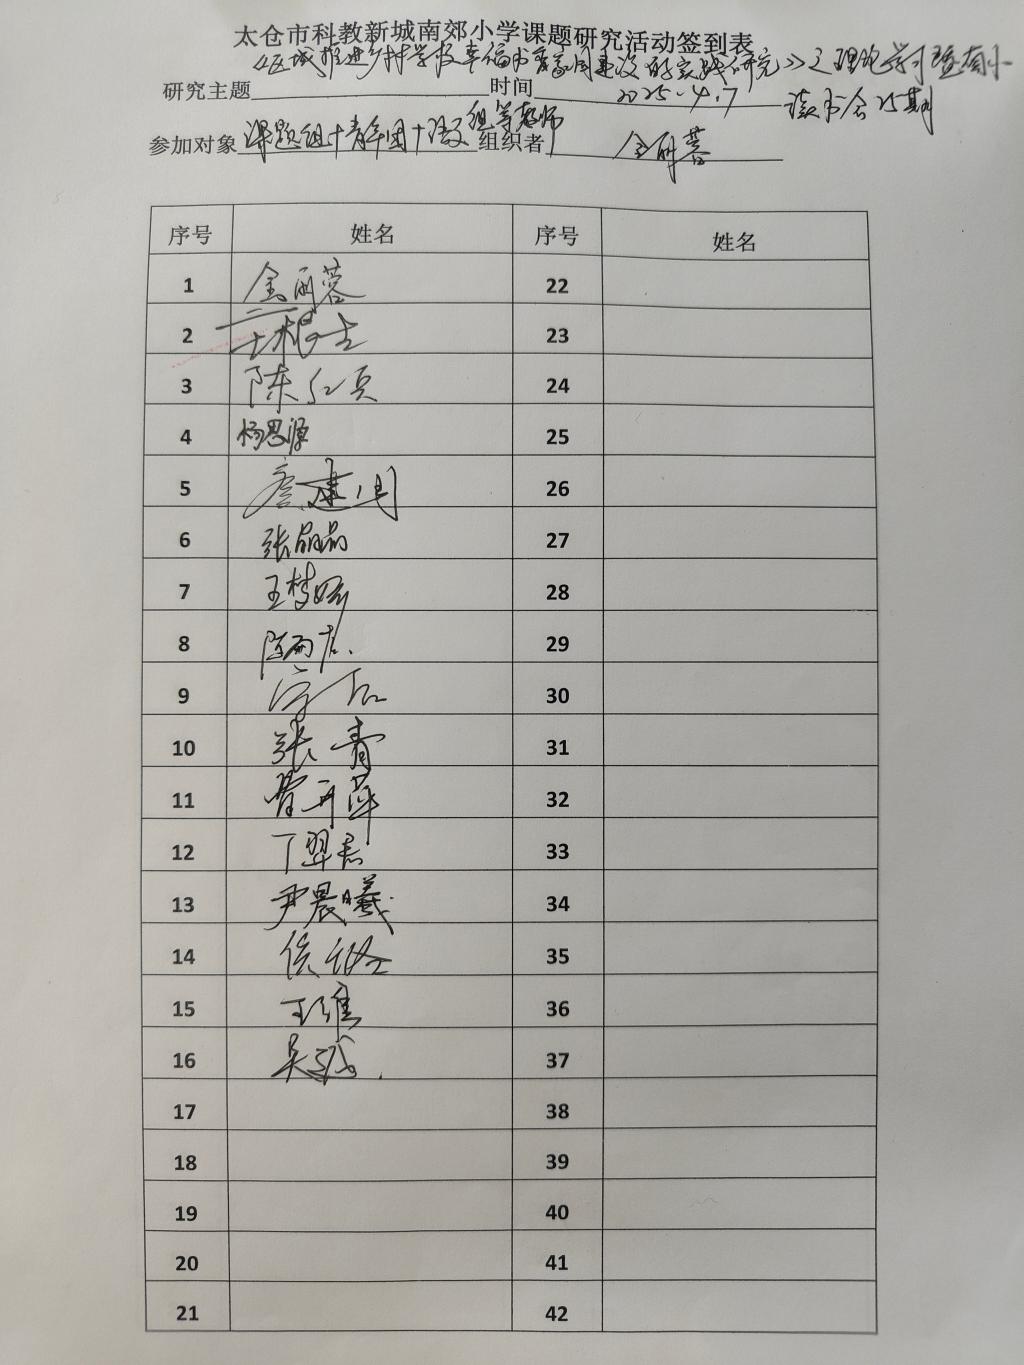 太仓市科教新城南郊小学课题研究活动签到表
《区域推进乡村学校幸福书香家园建设的实践研究》之理论学习暨南小
研究主题 时间 2025.4.7 读书会25期
参加对象 课题组+青年团+语文组等教师 组织者 金丽蓉
序号 姓名 序号 姓名
1 金丽蓉 22
2 王根生 23
3 陈红贞 24
4 杨思源 25
5 建 26
6 张晶晶 27
7 王梦 28
8 陈雨 29
9 30
10 张青 31
11 曾 萍 32
12 丁翠 33
13 尹晨曦 34
14 侯 35
15 王 36
16 吴 37
17 38
18 39
19 40
20 41
21 42